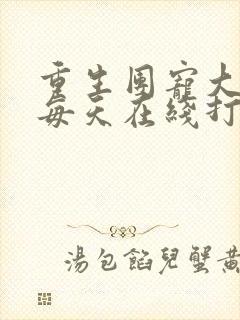 重生團寵大
每天在綫打
湯包餡兒蟹黃